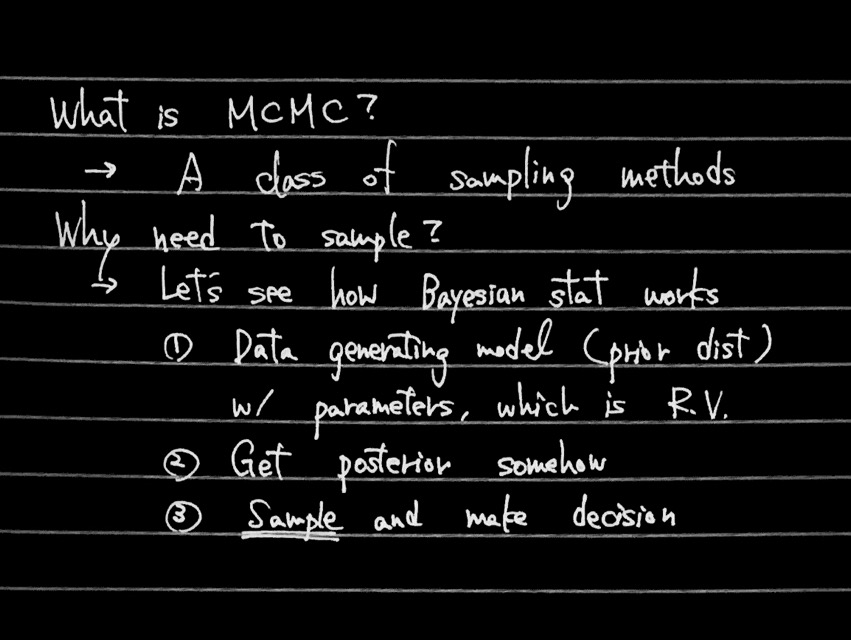 What is MCMC?
→ A class of sampling methods
Why need to sample?
→ Let's see how Bayesian stat works
① Data generating model (prior dist)
w/ parameters, which is R.V.
② Get posterior somehow
③ Sample and make decision